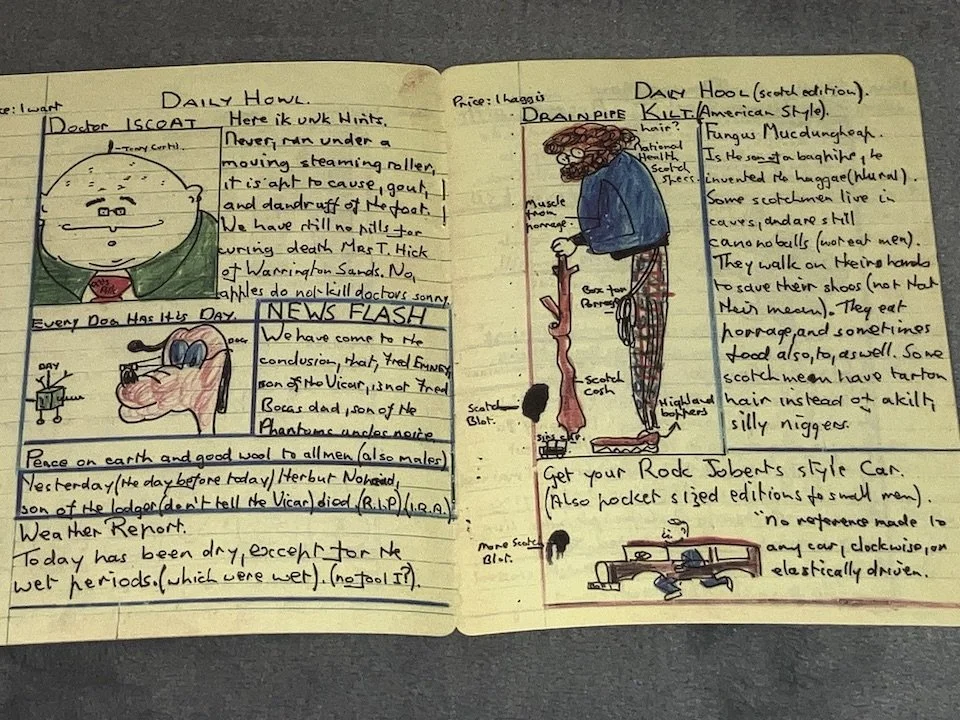 ce: 1 wart
DAILY HOWL.
Doctor ISCOAT
Tony Curtis.
Here ik unk Hints.
Never, run under a
moving steaming roller,
it is apt to cause, gout,
and dandruff of the foot.
We have still no pills for
curing death Mrs T. Hick
of Warrington Sands. No,
apples do not kill doctors sonny
EVERY DOG HAS IT IS DAY.
DAY
DOG
NEWS FLASH
We have come to the
conclusion, that, Fred Emney,
son of the Vicar, is not Fred
Bocas dad, son of the
Phantoms uncles noire
Peace on earth and good wool to all men (also males)
Yesterday (the day before today) Herbut Nohead,
son of the lodger (don't tell the Vicar) died. (R.I.P.) (I.R.A.)
Weather Report.
Today has been dry, except for the
wet periods. (which were wet). (no fool I?).
Price: 1 haggis
DAILY HOOL (scotch edition).
DRAINPIPE KILT. (American Style).
hair?
National
Health
Scotch
specs.
Muscle
from
porrage.
Box for
Porrage
Scotch
cosh
Scotch
Blot.
Highland
boppers
Fungus Mucdungheap.
Is the son of a bagpipe, he
invented the haggae (plural).
Some scotchmen live in
caves, and are still
canonoballs (wot eat men).
They walk on theire hands
to save their shoos (not that
their meean). They eat
porrage, and sometimes
food also, to, aswell. Some
scotchmean have tartan
hair instead of a kilt,
silly niggers.
Get your Rock Joberts style Car.
(Also pocket sized editions fo small men).
More Scotch
Blot.
"No reference made to
any car, clockwise, or
elastically driven.